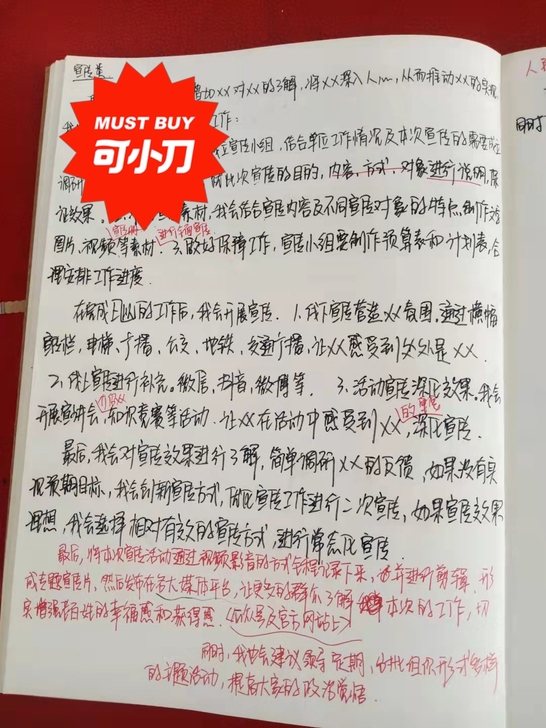 宣传类
对XX的了解,将XX深入人心,从而推动XX的实现
工作:
MUST BUY
可小刀
宣传小组,结合单位工作情况及本次宣传的需要成立
调研 就此次宣传的目的,内容,方式,对象进行说明,保
证效果。 素材,我会结合宣传内容及不同宣传对象的特点,制作
宣传册 进行全面宣传
图片,视频等素材。3.做好保障工作,宣传小组要制作预算表和计划表,合
理安排工作进度。
在完成 的工作后,我会开展宣传。1.线下宣传营造XX氛围。通过横幅
宣传栏,电梯,广播,公交,地铁,交通广播,让XX感受到处处是XX。
2.线上宣传进行补充。微信,抖音,微博等。 3.活动宣传深化效果。我会
开展宣讲会,知识竞赛等活动,让XX在活动中感受到XX的 ,深化宣传。
最后,我会对宣传效果进行了解,简单调研XX的反馈,如果没有实
现预期目标,我会创新宣传方式,就此宣传工作进行二次宣传,如果宣传效果
理想,我会选择相对有效的宣传方式,进行常态化宣传。
最后,将本次宣传活动通过视频影音的方式全程记录下来,也并进行剪辑,形
成专题宣传片,然后发布在各大媒体平台,让更多的群众了解 本次的工作,切
实增强老百姓的幸福感和获得感。(公众号及官方网站上)
同时,我也会建议领导定期,分批组织形式多样
的主题活动,提高大家的政治觉悟。
人
同时